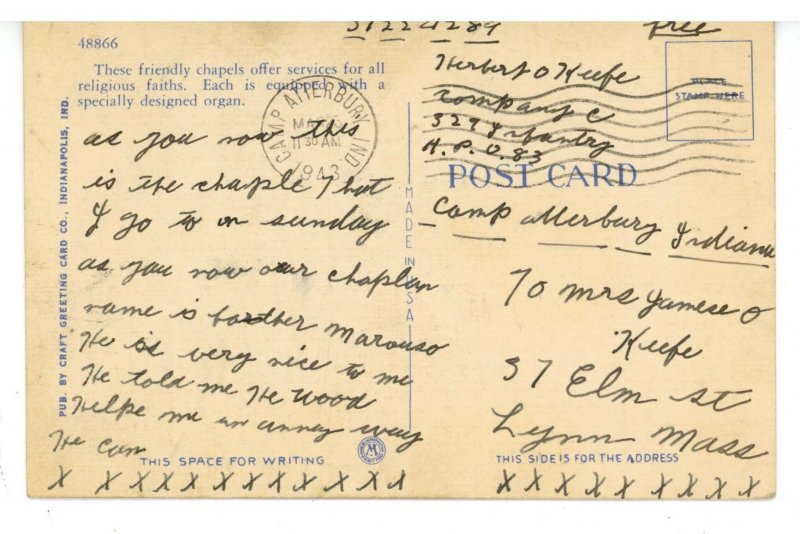 48866
These friendly chapels offer services for all
religious faiths. Each is equipped with a
specially designed organ.
as you now this
is the chaple that
I go to on sunday
as you now our chaplan
name is borther Marouso
He is very nice to me
He told me He wood
Helpe me in anney way
He can
THIS SPACE FOR WRITING
X X X X X X X X X X X X X
PUB. BY CRAFT GREETING CARD CO., INDIANAPOLIS, IND.
MADE IN USA
CAMP ATTERBURY IND
11 30 AM
1943
free
PLACE
STAMP HERE
Herbert O Keefe
Company C
329 Infantry
A. P. O. 83
POST CARD
Camp Atterbury Indiana
To Mrs Jamese O
Keefe
37 Elm st
Lynn Mass
THIS SIDE IS FOR THE ADDRESS
X X X X X X X X X X